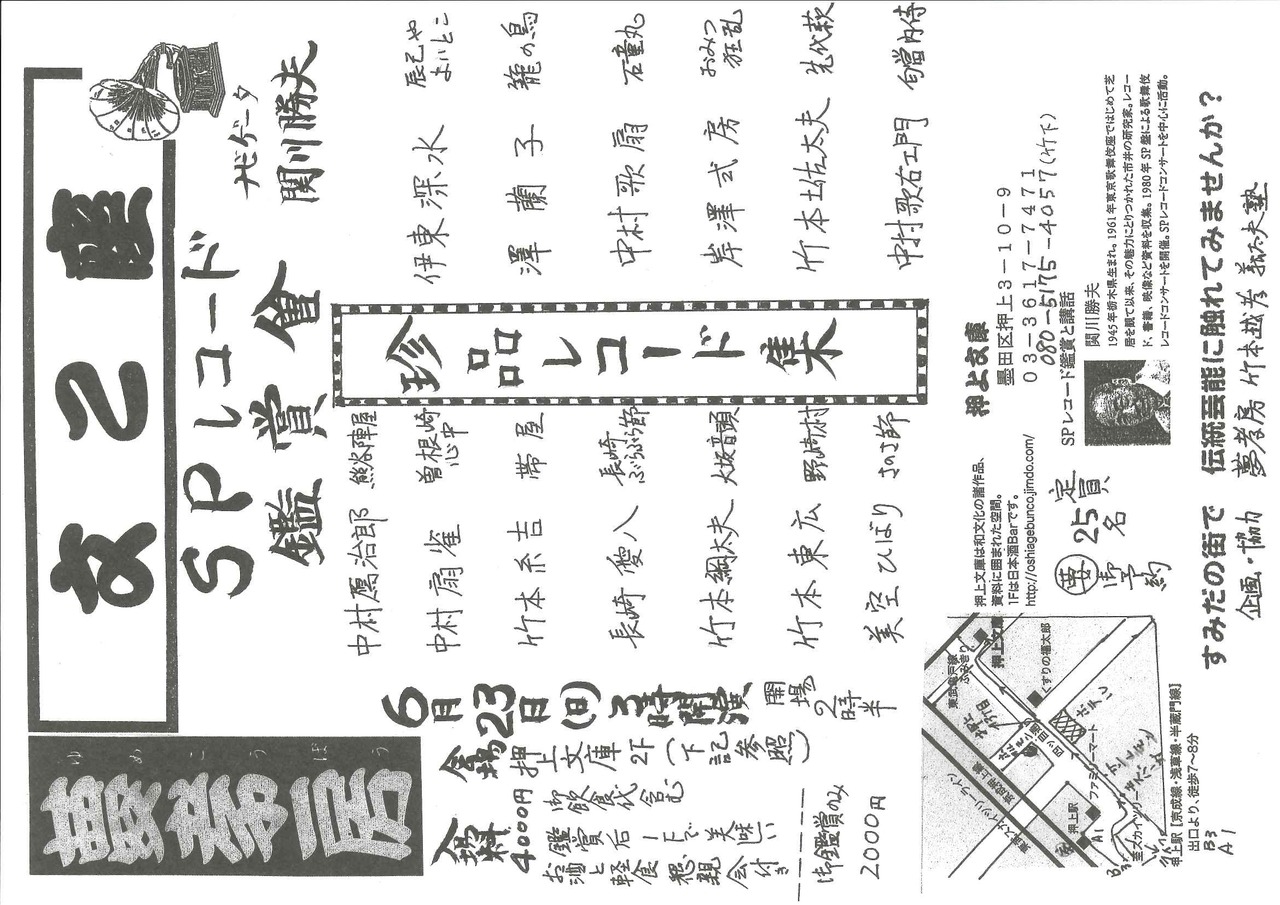 夢孝房
ゆめこうぼう
SPレコード
鑑賞會
ナビゲータ
関川勝夫
6月23日(日)3時開演
開場の2時半
會場 押上文庫2F(下記参照)
4000円 御飲食代含む
御鑑賞后1Fで美味い
お酒と軽食 懇親会付き
御鑑賞のみ
2000円
珍品レコード集
中村鴈治郎 熊谷陣屋
中村扇雀 曽根崎心中
竹本糸吉 帯屋
長崎愛八 長崎ぶらぶら節
竹本綱太夫 大坂音頭
竹本東広 野崎村
美空ひばり さのさ節
伊東深水 辰己やよいとこ
澤蘭子 籠の鳥
中村歌扇 石童丸
岸澤式房 おみつ狂乱
竹本土佐太夫 先代萩
中村歌右エ門
東武亀戸線
ふみきり
押上文庫
くすりの福太郎
四ッ目通り
京成押上線
東武スカイツリーライン
ファミリーマート
押上駅
A1
至スカイツリー
押上駅【京成線・浅草線・半蔵門線】
出口より、徒歩7～8分
B3
A1
押上文庫は和文化の諸作品、
資料に囲まれた空間。
1Fは日本酒Barです。
http://oshiagebunco.jimdo.com/
要
御予約
定員
25名
押上文庫
墨田区押上3-10-9
03-3617-7471
080-5175-4057(竹下)
SPレコード鑑賞と講話
関川勝夫
1945年栃木県生まれ。1961年東京歌舞伎座ではじめて芝
居を観て以来、その魅力にとりつかれた市井の研究家。レコー
ド、書籍、映像など資料を収集。1980年SP盤による歌舞伎
レコードコンサートを開催。SPレコードコンサートを中心に活動。
すみだの街で 伝統芸能に触れてみませんか？
企画・協力 夢孝房 竹本越孝 義太夫塾